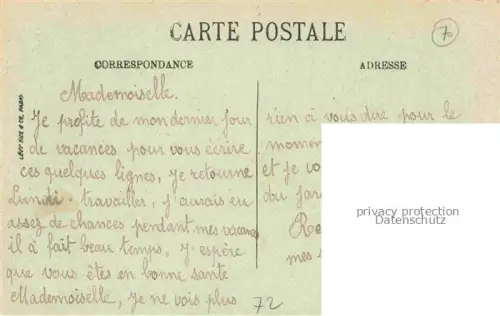 CARTE POSTALE
70
CORRESPONDANCE
ADRESSE
LÉVY FILS & CIE, PARIS
Mademoiselle.
Je profite de mon dernier jour
de vacances pour vous écrire
ces quelques lignes, je retourne
Lundi travailler, j'aurais eu
assez de chances pendant mes vacances
il à fait beau temps, j'espère
que vous êtes en bonne santé
Mademoiselle, je ne vois plus
rien à vous dire pour le
momen
et je vo
du jar
Re
mes s
72
privacy protection
Datenschutz